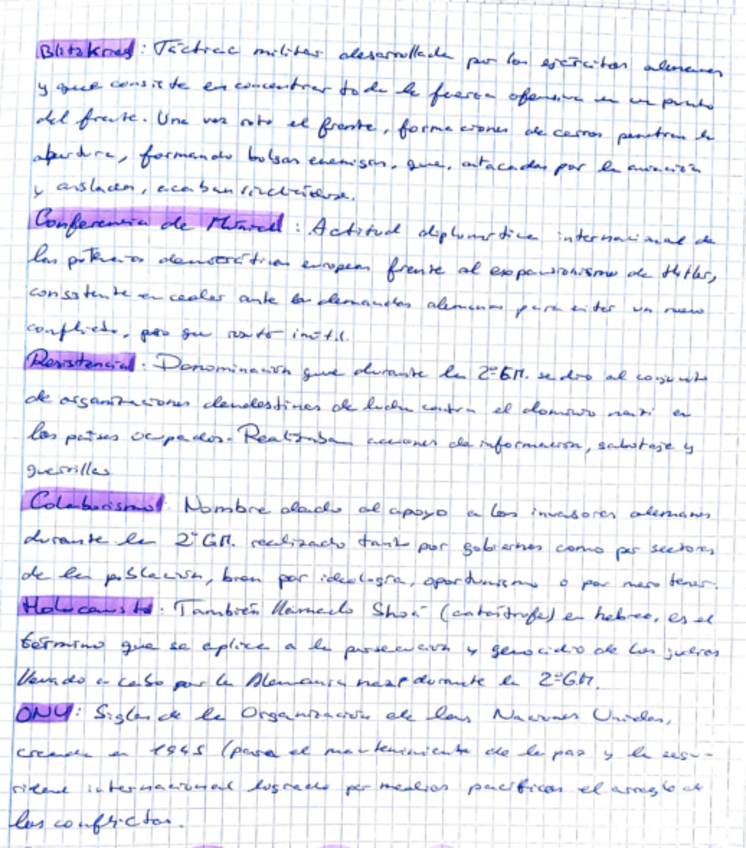 Blitzkrieg: Táctica militar desarrollada por los ejércitos alemanes
y que consiste en concentrar toda la fuerza ofensiva en un punto
del frente. Una vez roto el frente, formaciones de carros penetran la
abertura, formando bolsas enemigas, que, atacadas por la aviación
y aisladas, acaban rindiéndose.
Conferencia de Munich: Actitud diplomática internacional de
las potencias democráticas europeas frente al expansionismo de Hitler,
consistente en ceder ante las demandas alemanas para evitar un nuevo
conflicto, pero que resultó inútil.
Resistencia: Denominación que durante la 2ªGM. se dio al conjunto
de organizaciones clandestinas de lucha contra el dominio nazi en
los países ocupados. Realizaban acciones de información, sabotaje y
guerrillas
Colaborismo: Nombre dado al apoyo a los invasores alemanes
durante la 2ªGM. realizado tanto por gobiernos como por sectores
de la población, bien por ideología, oportunismo o por mero temor.
Holocausto: También llamado Shoá (catástrofe) en hebreo, es el
término que se aplica a la persecución y genocidio de los judíos
llevado a cabo por la Alemania nazi durante la 2ªGM.
ONU: Siglas de la Organización de las Naciones Unidas,
creada en 1945 (para el mantenimiento de la paz y la segu-
ridad internacional logrado por medios pacíficos el arreglo de
los conflictos.